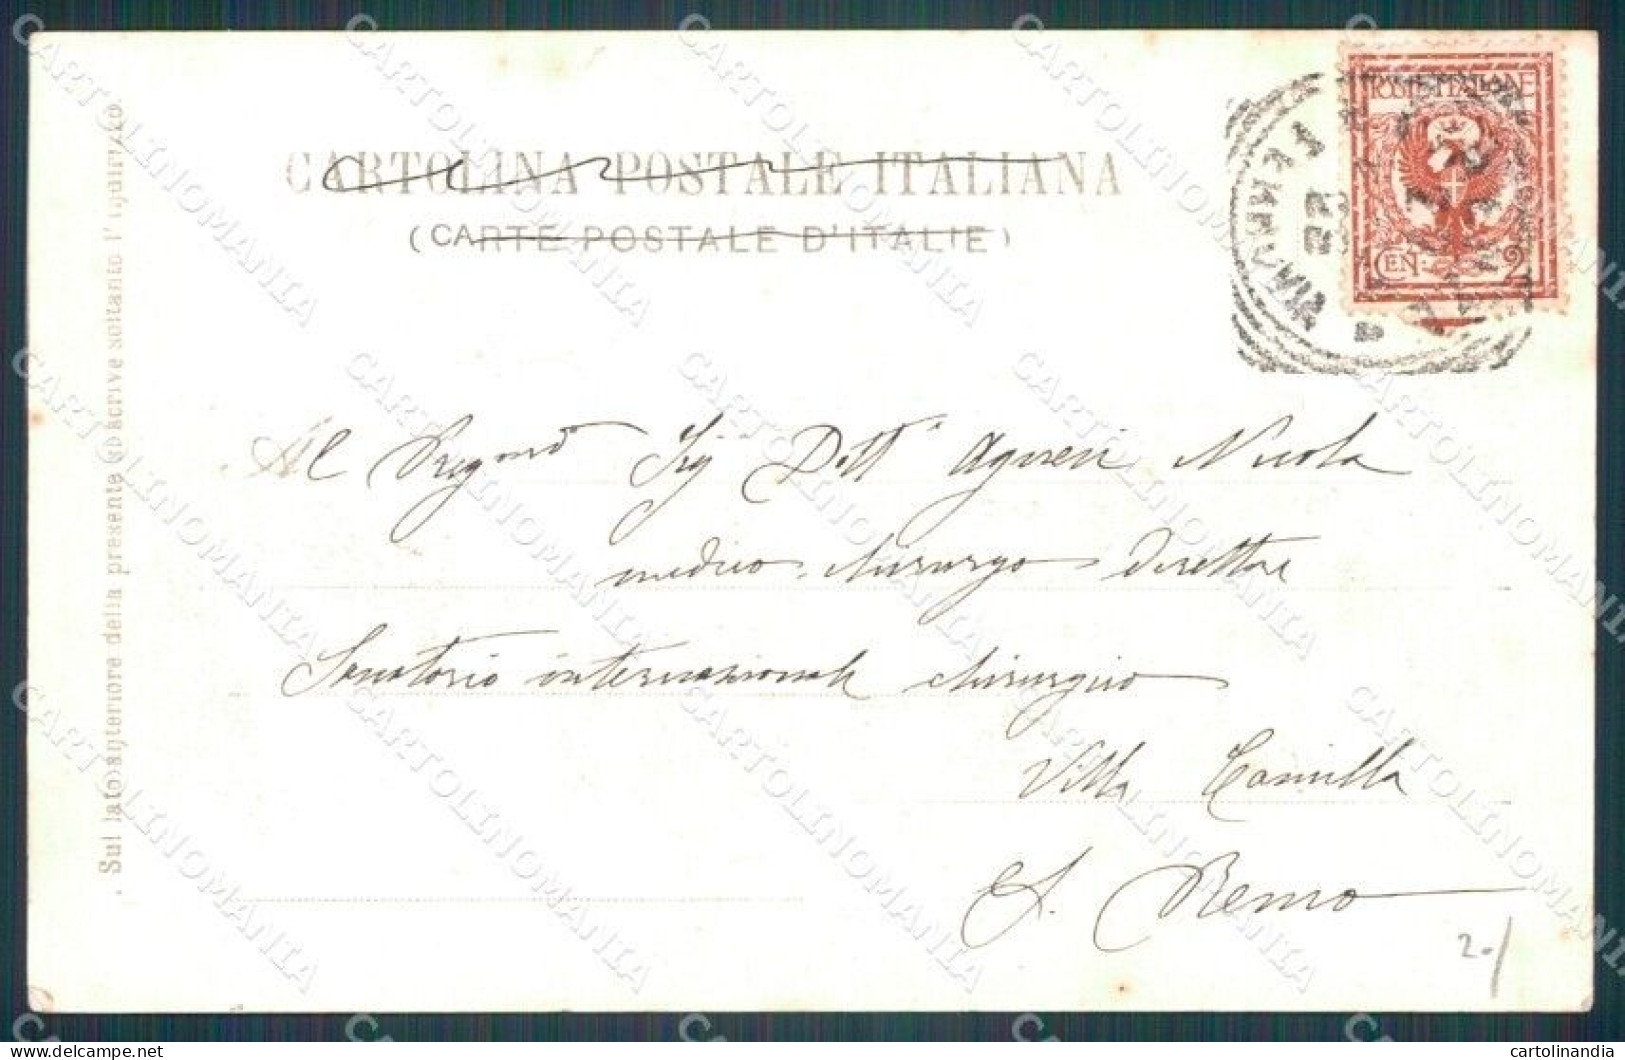 CARTOLINA POSTALE ITALIANA
(CARTE POSTALE D'ITALIE)
POSTE ITALIANE
CEN. 2
22
Al Preg.mo Sig Dott. Nicola
medico chirurgo Direttore
Sanatorio internazionale chirurgico
Villa Camilla
S. Remo
2-/
Sul lato anteriore della presente si scrive soltanto l'indirizzo.
CARTOLINOMANIA
cartolinandia